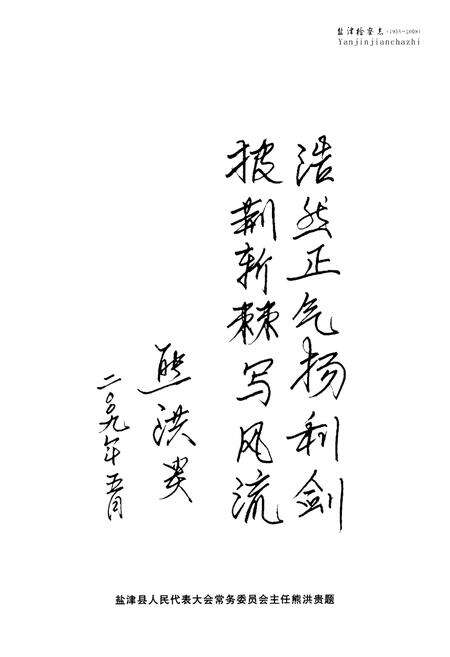 盐津检察志(1955-2008)
Yanjinjianchazhi
浩然正气扬利剑
披荆斩棘写风流
熊洪贵
二〇〇九年五月
盐津县人民代表大会常务委员会主任熊洪贵题